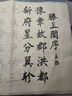 滕王閣序
豫章故郡洪都
新府星分翼軫